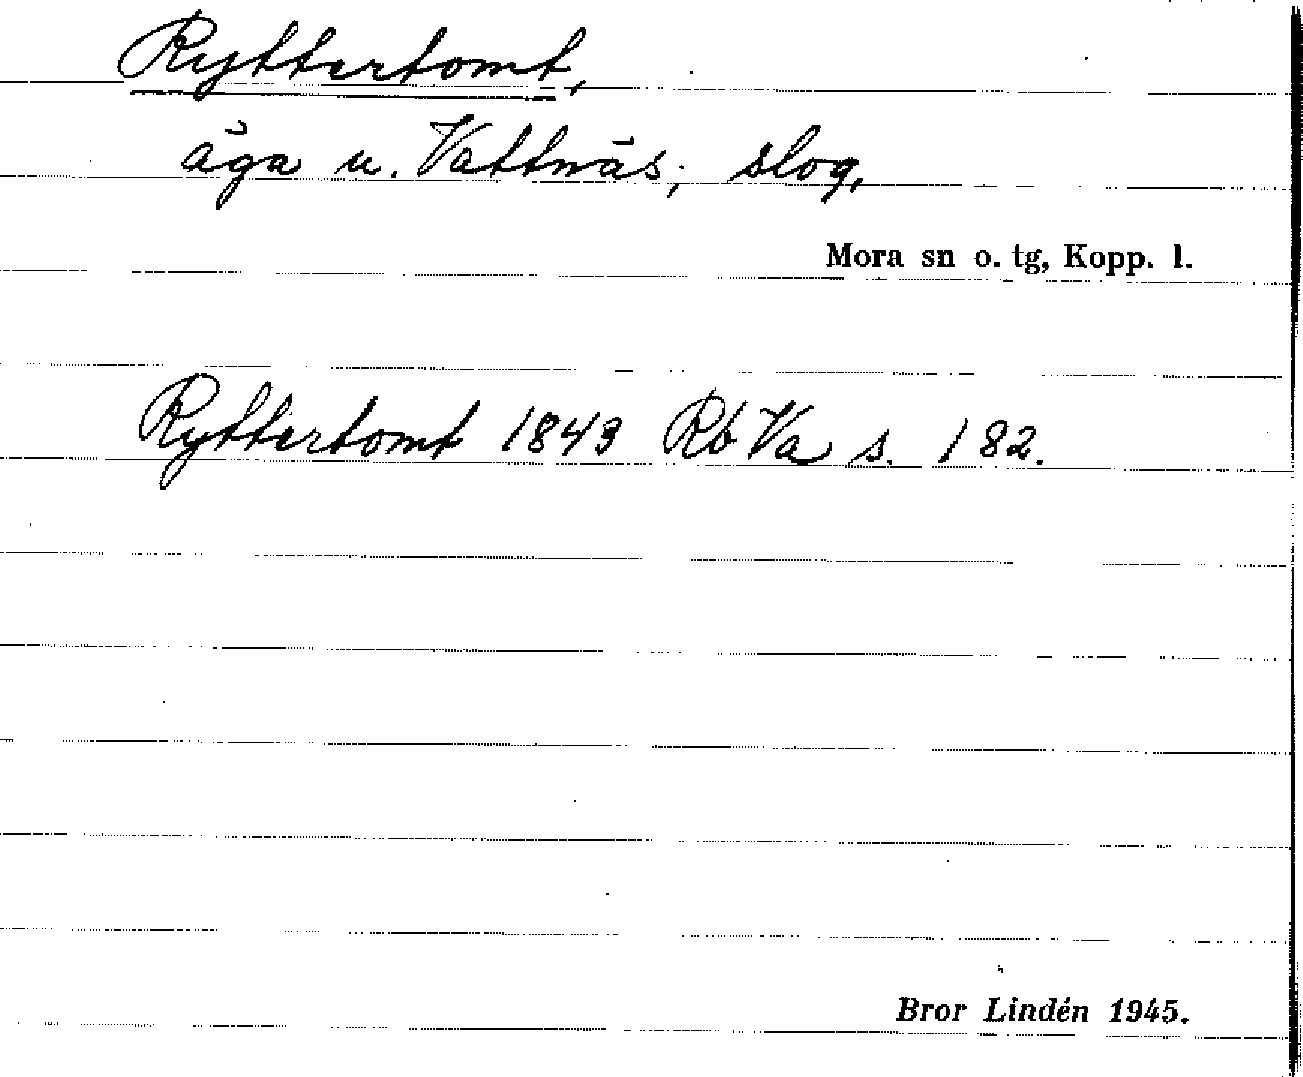 Ryttertomt,
äga u. Vattnäs, slog,
Mora sn o. tg, Kopp. l.
Ryttertomt 1843 Rb Va s. 182.
Bror Lindén 1945.